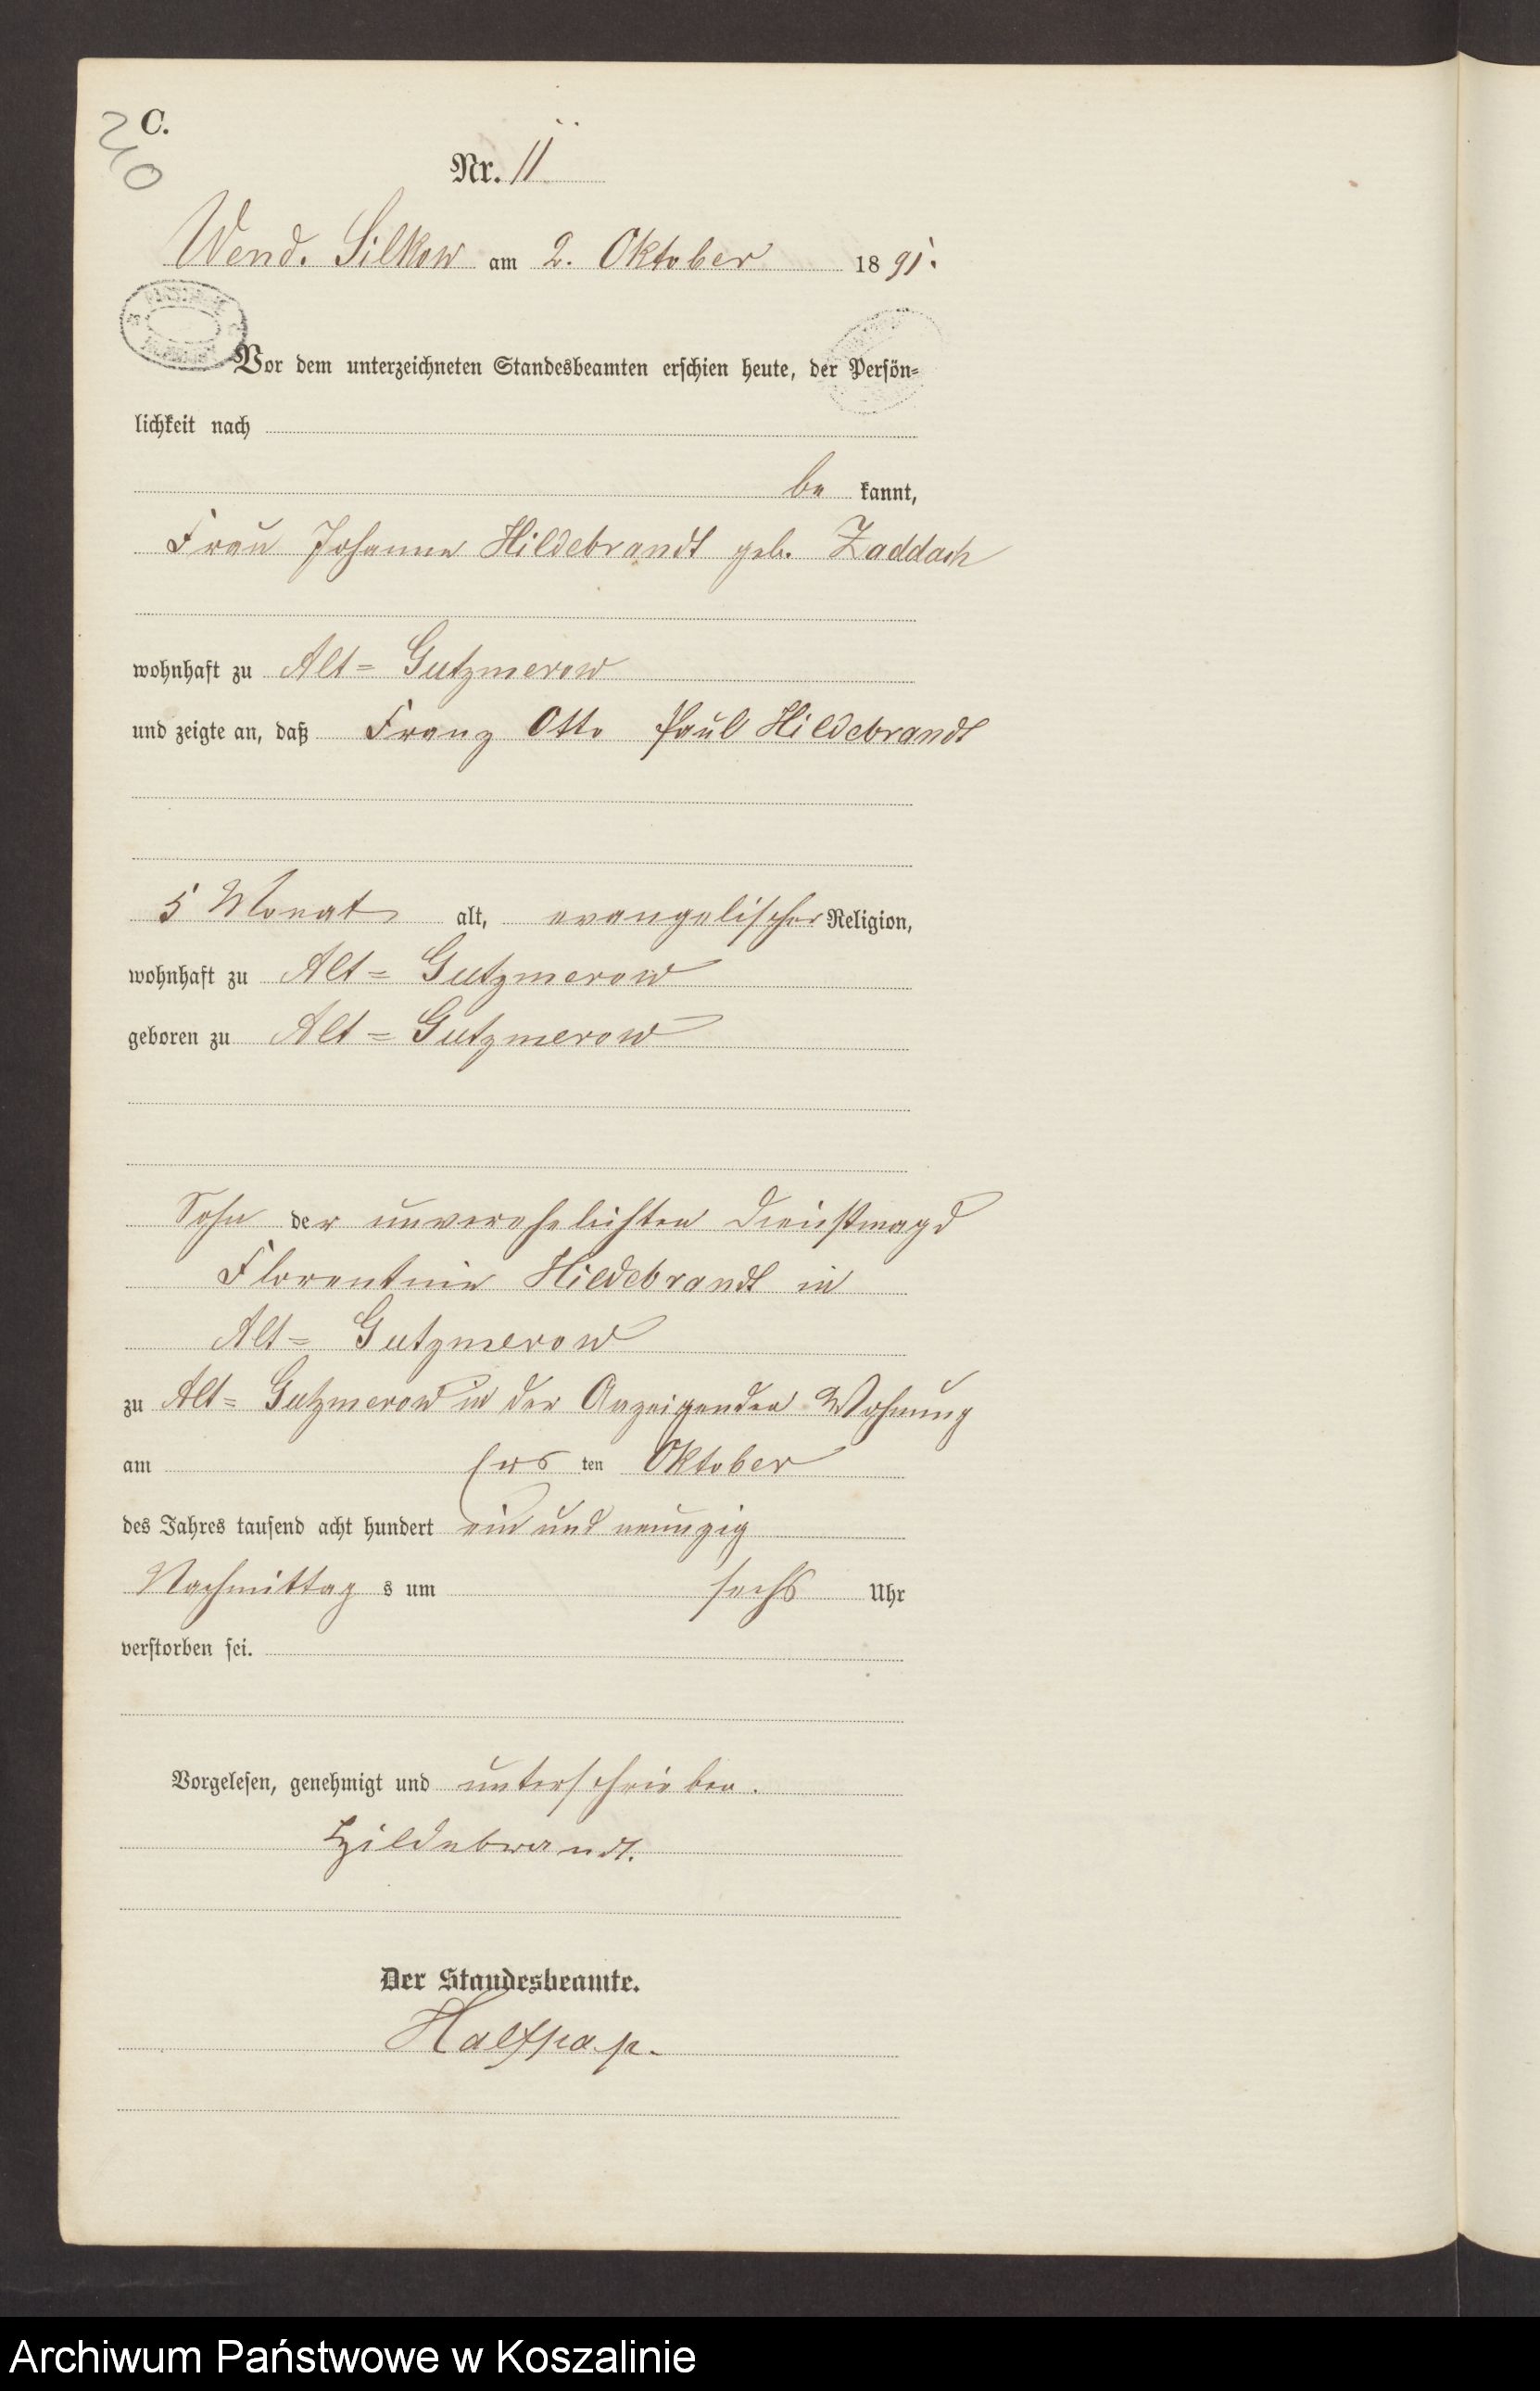 C.
210
Nr. 11
Wend. Silkow am 2. Oktober 1891.
Vor dem unterzeichneten Standesbeamten erschien heute, der Persön=
lichkeit nach
be kannt,
Frau Johanne Hildebrandt geb. Zaddach
wohnhaft zu Alt=Gutzmerow
und zeigte an, daß Franz Otto Paul Hildebrandt
5 Monat alt, evangelischer Religion,
wohnhaft zu Alt=Gutzmerow
geboren zu Alt=Gutzmerow
Sohn der unverehelichten Dienstmagd
Florentine Hildebrandt in
Alt=Gutzmerow
zu Alt=Gutzmerow in der Anzeigenden Wohnung
am ten Oktober
des Jahres tausend acht hundert ein und neunzig
Nachmittag s um sechs Uhr
verstorben sei.
Vorgelesen, genehmigt und unterschrieben.
Hildebrandt.
Der Standesbeamte.
Halfpap.
Archiwum Państwowe w Koszalinie